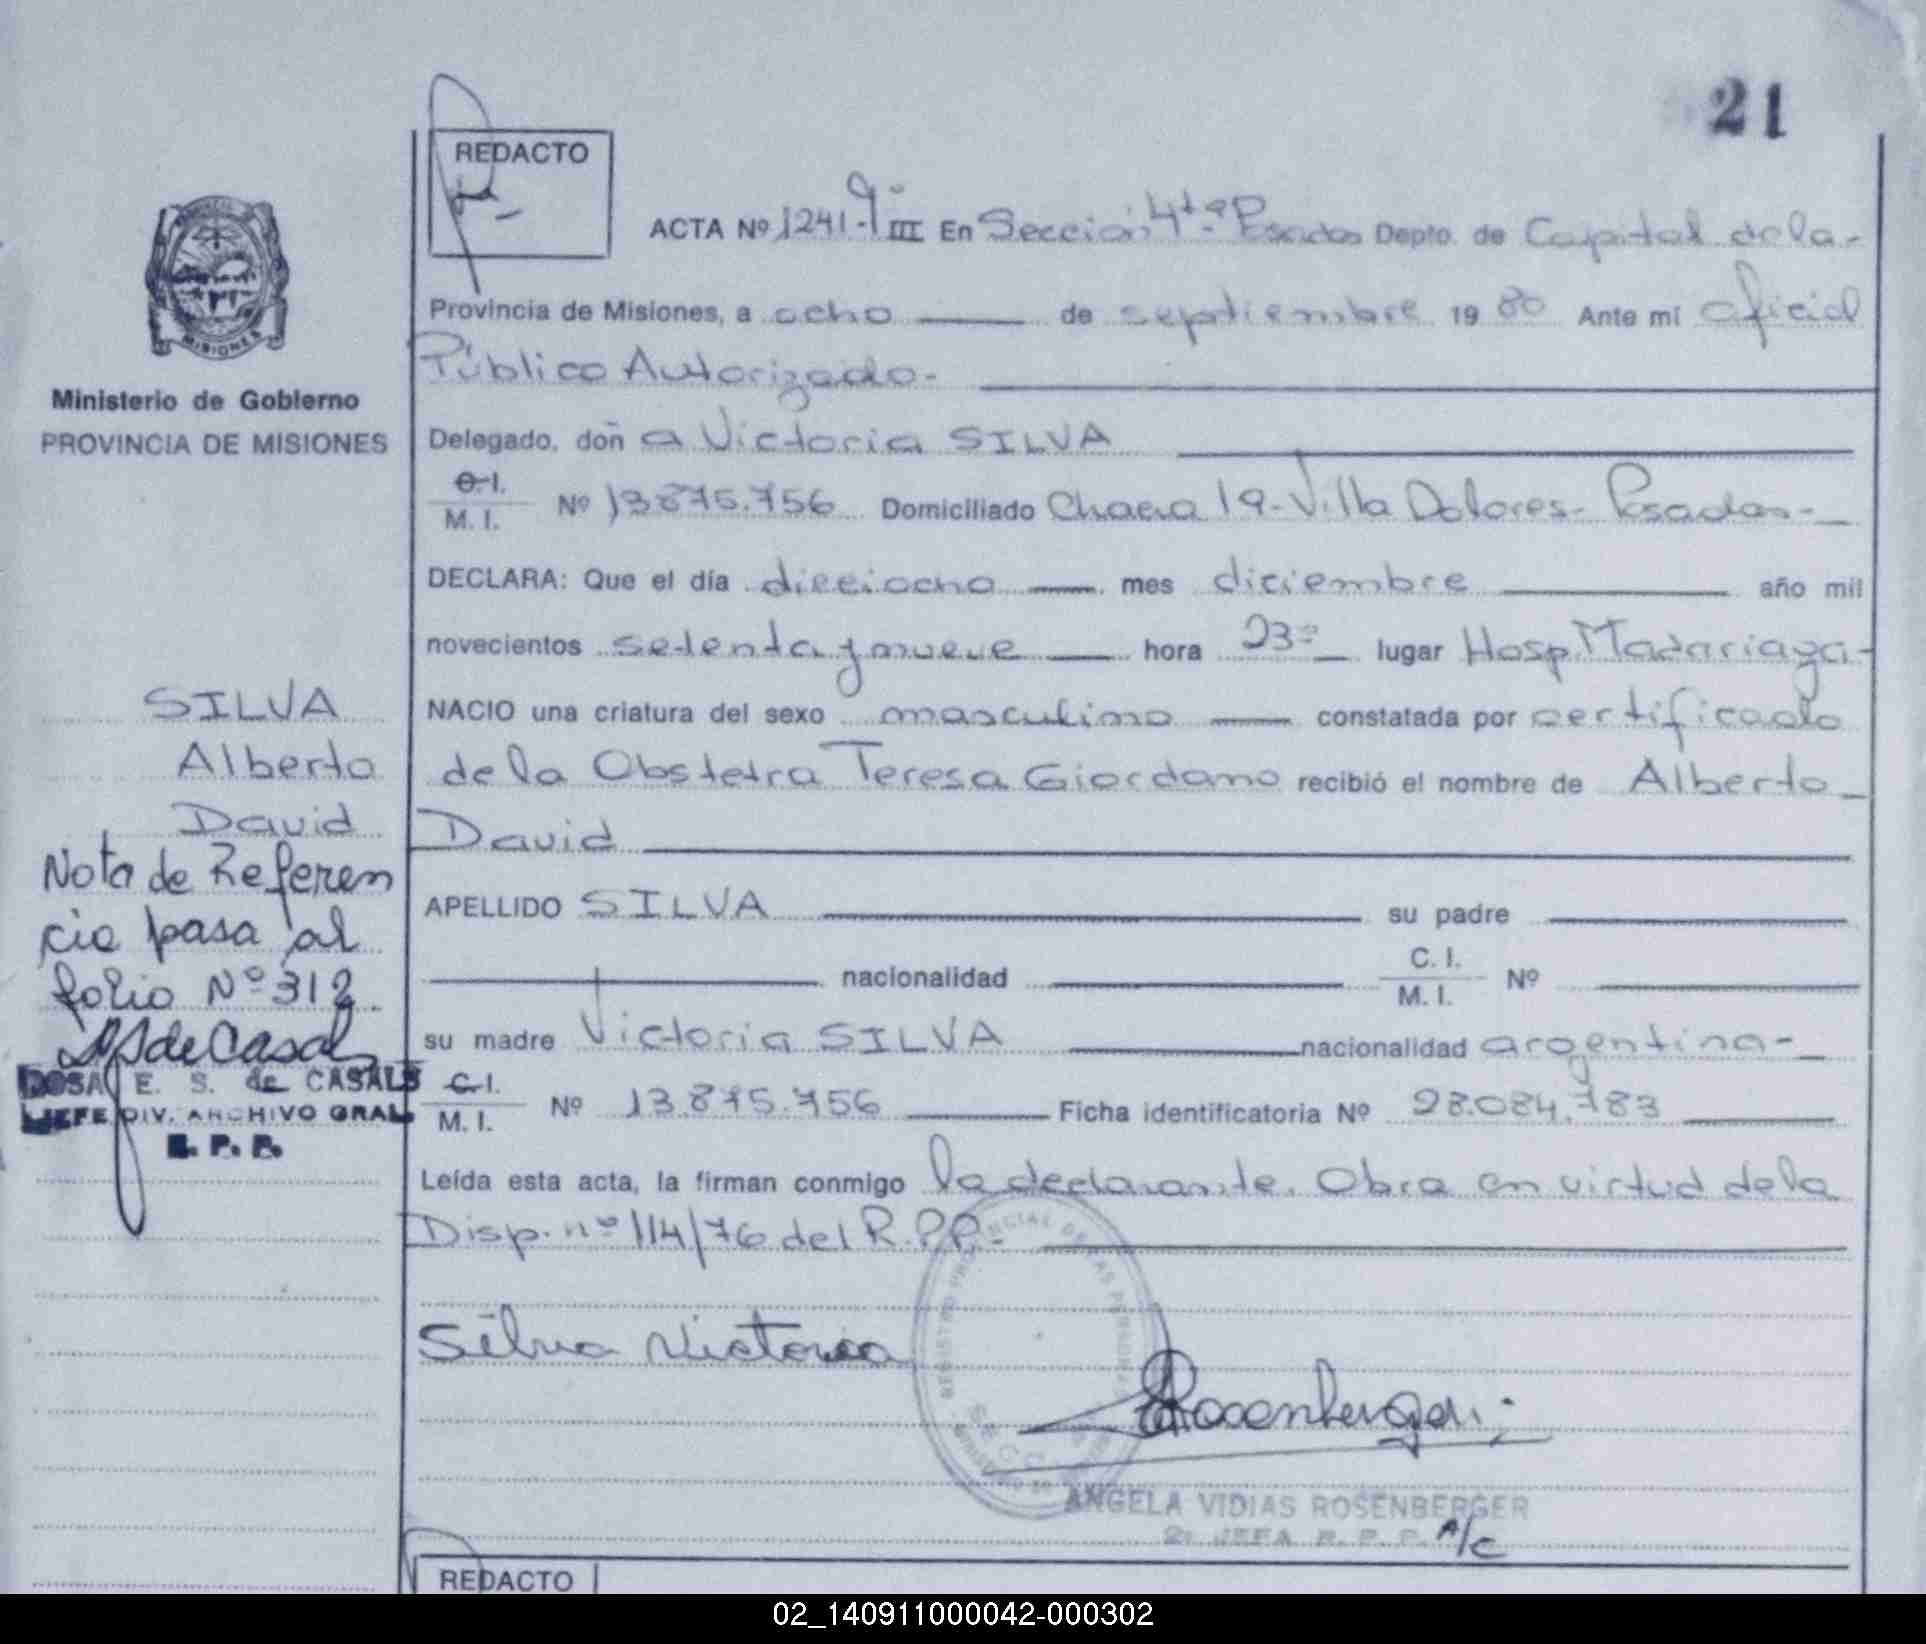 21
REDACTO
ACTA Nº 1241-Tº III En Sección 4ta- Posadas Depto. de Capital de la-
Provincia de Misiones, a ocho de septiembre 19 80 Ante mí Oficial
Público Autorizado-
Delegado, doñ a Victoria SILVA
C.I.
M. I. Nº 13.875.756 Domiciliado Chacra 19-Villa Dolores- Posadas-
DECLARA: Que el día dieciocho mes diciembre año mil
novecientos setenta y nueve hora 23º lugar Hosp. Madariaga-
NACIO una criatura del sexo masculino constatada por certificado
de la Obstetra Teresa Giordano recibió el nombre de Alberto
David
APELLIDO SILVA su padre
nacionalidad C. I.
M. I. Nº
su madre Victoria SILVA nacionalidad argentina-
C.I.
M. I. Nº 13.875.756 Ficha identificatoria Nº 28.084.783
Leída esta acta, la firman conmigo la declarante. Obra en virtud de la
Disp. nº 114/76 del R.P.P.-
Silva Victoria
Rosenberger
ANGELA VIDIAS ROSENBERGER
2ª JEFA R. P. P. A/C
REDACTO
MISIONES
Ministerio de Gobierno
PROVINCIA DE MISIONES
SILVA
Alberto
David
Nota de Referen
cia pasa al
folio Nº 312.
de Casals
E. S. de CASALS
JEFE DIV. ARCHIVO GRAL.
R. P. P.
02_140911000042-000302